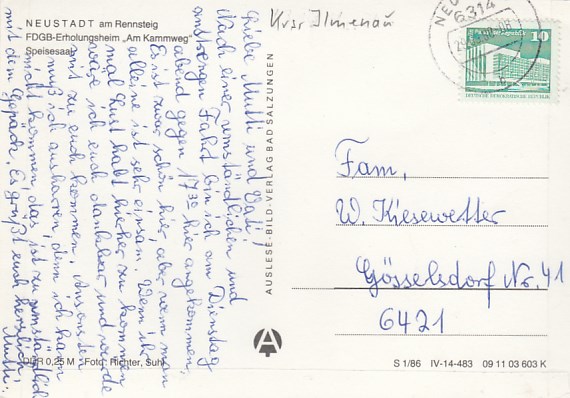 Kreis Ilmenau
NEUSTADT am Rennsteig
FDGB-Erholungsheim „Am Kammweg"
Speisesaal
6314
10
DEUTSCHE DEMOKRATISCHE REPUBLIK
Liebe Mutti und Vati!
Nach einer umständlichen und
anstrengen Fahrt bin ich am Dienstag
abend gegen 17³⁰ hier angekommen.
Es ist zwar schön hier, aber wenn man
alleine ist sehr einsam. Wenn ihr
mal Lust habt hierher zu kommen
wäre ich euch dankbar und würde
mit zu euch kommen. Ansonsten
muß ich ausharren, denn ich kann
nicht kommen, das ist zu umständlich
mit dem Gepäck. Es grüßt euch herzlich
Mutti.
AUSLESE-BILD-VERLAG BAD SALZUNGEN
Fam.
W. Kiesewetter
Gösselsdorf Nr. 41
6421
A
DDR 0,25 M Foto: Richter, Suhl
S 1/86 IV-14-483 09 11 03 603 K